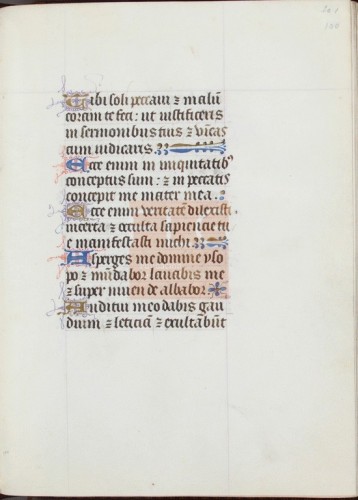 Tibi soli peccaui ⁊ malū
coram te feci: ut iustificeris
in sermonibus tuis ⁊ vīcas
cum iudicaris
Ecce enim in iniquitatibꝰ
conceptus sum: ⁊ in peccatis
concepit me mater mea.
Ecce enim veritatē dilexisti
incerta ⁊ occulta sapiencie tu
e manifestasti michi
Asperges me domine yso
po ⁊ mūdabor lauabis me
⁊ super niuem dealbabor.
Auditui meo dabis gau
dium ⁊ leticiā ⁊ exultabūt